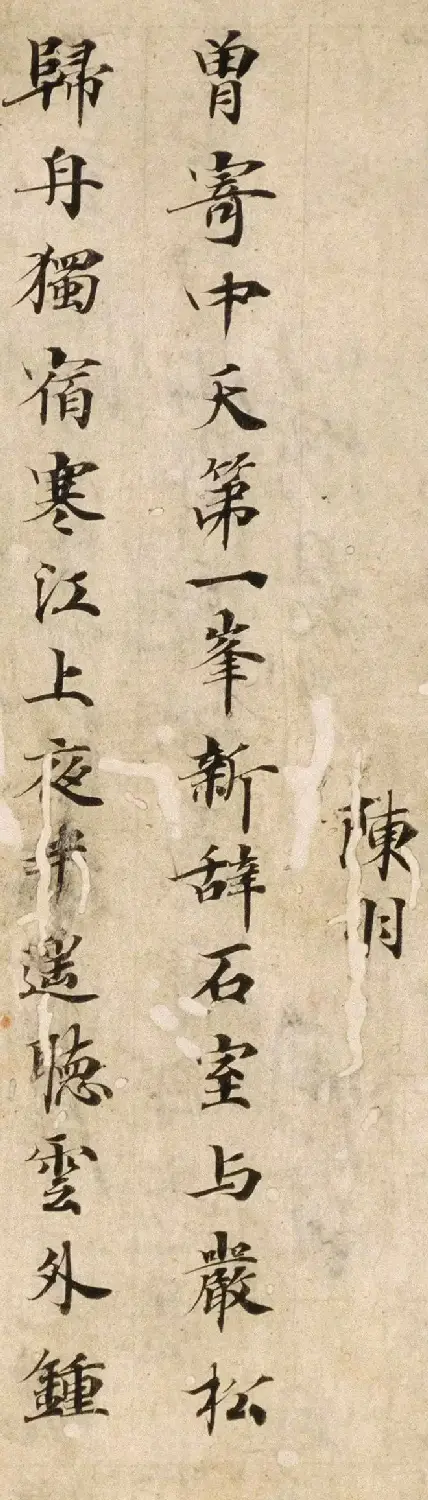 陳羽
曾寄中天第一峯新辞石室与嚴松
歸舟獨宿寒江上夜半遥聴雲外鍾